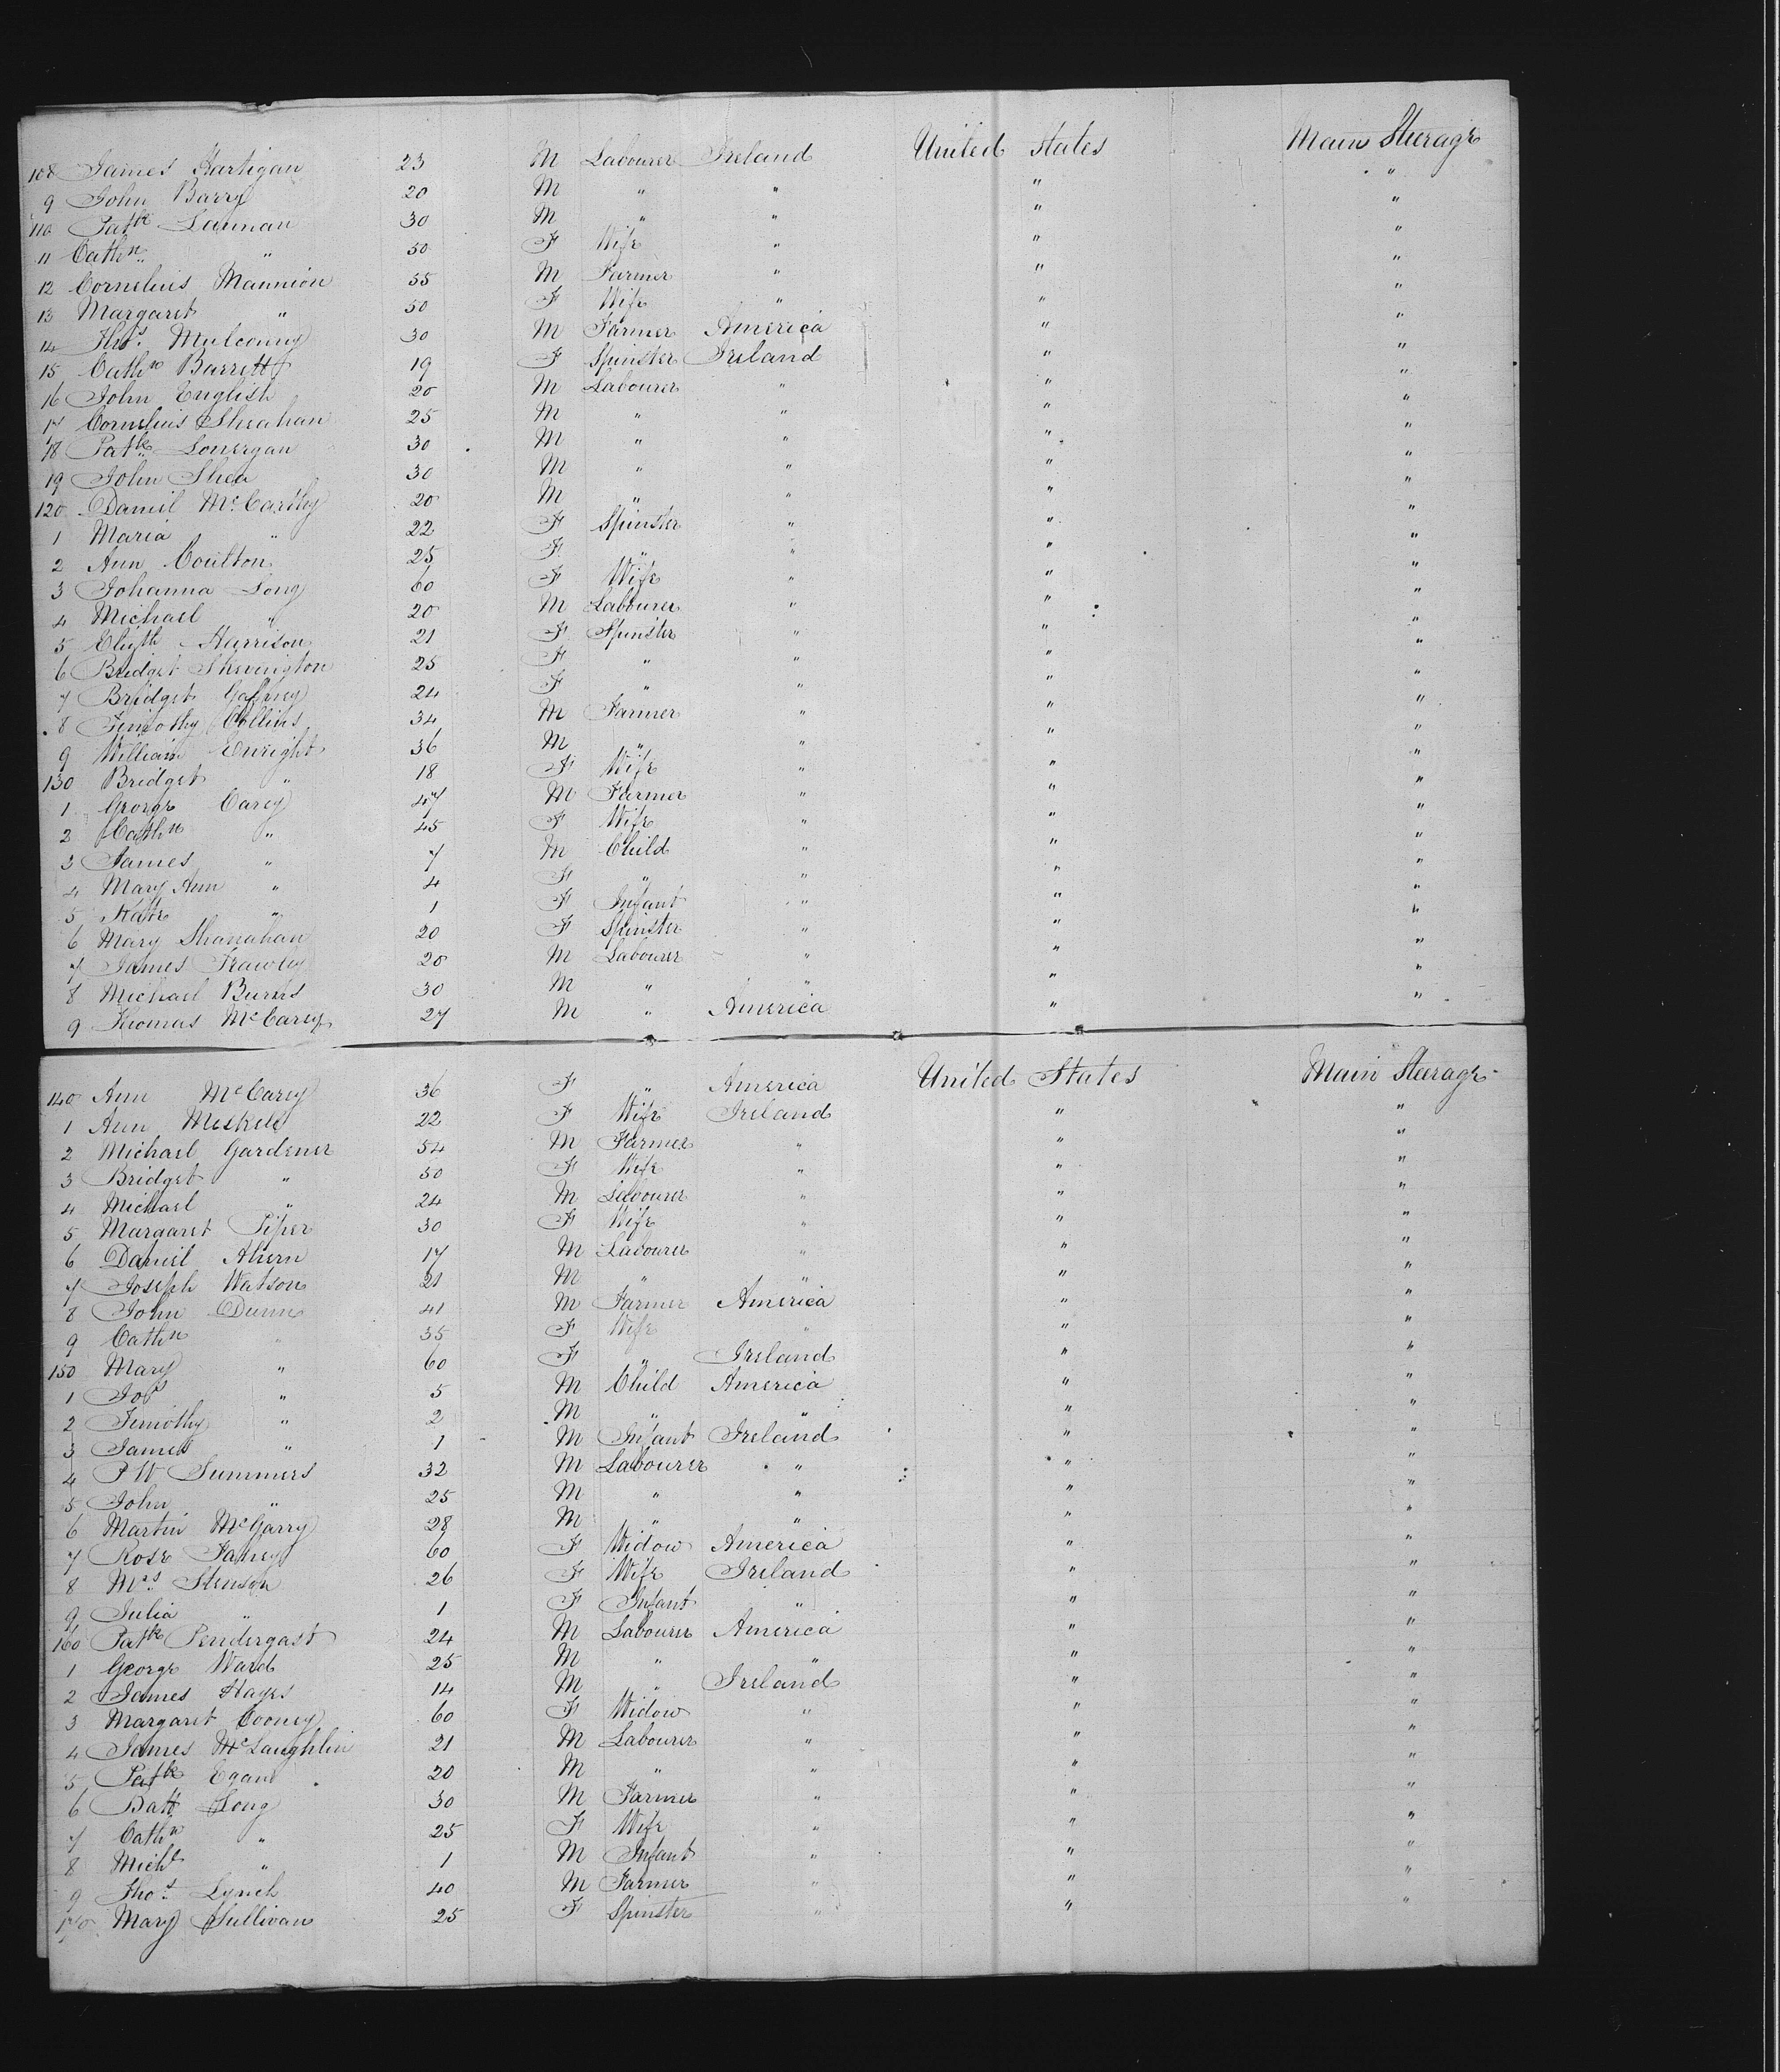 108 James Hartigan 23 M Labourer Ireland United States Main Steerage
9 John Barry 20 M " " " "
110 Patk Lannan 30 M " " " "
11 Cathn " 50 F Wife " " "
12 Cornelius Mannion 55 M Farmer " " "
13 Margaret " 50 F Wife " " "
14 Thos. Mulcouny 30 M Farmer America " "
15 Cathn Barrett 19 F Spinster Ireland " "
16 John English 20 M Labourer " " "
17 Cornelius Sheahan 25 M " " " "
18 Patk Lonergan 30 M " " " "
19 John Shea 30 M " " " "
120 Daniel McCarthy 20 M " " " "
1 Maria " 22 F Spinster " " "
2 Ann Coulton 25 F " " " "
3 Johanna Long 60 F Wife " " "
4 Michael " 20 M Labourer " " "
5 Elizth Harrison 21 F Spinster " " "
6 Bridget Shevington 25 F " " " "
7 Bridget Gaffney 24 F " " " "
8 Timothy Collins 34 M Farmer " " "
9 William Enright 36 M " " " "
130 Bridget " 18 F Wife " " "
1 George Carey 47 M Farmer " " "
2 Cathn " 45 F Wife " " "
3 James " 7 M Child " " "
4 Mary Ann " 4 F " " " "
5 Kate " 1 F Infant " " "
6 Mary Shanahan 20 F Spinster " " "
7 James Frawley 20 M Labourer " " "
8 Michael Burns 30 M " " " "
9 Thomas McCarey 27 M " America " "
140 Ann McCarey 36 F " America United States Main Steerage
1 Ann Meskell 22 F Wife Ireland " "
2 Michael Gardener 54 M Farmer " " "
3 Bridget " 50 F Wife " " "
4 Michael " 24 M Labourer " " "
5 Margaret Piper 30 F Wife " " "
6 Daniel Ahern 17 M Labourer " " "
7 Joseph Watson 21 M " " " "
8 John Dunn 41 M Farmer America " "
9 Cathn " 35 F Wife " " "
150 Mary " 60 F " Ireland " "
1 Jos " 5 M Child America " "
2 Timothy " 2 M " " " "
3 James " 1 M Infant Ireland " "
4 P W Summers 32 M Labourer " " "
5 John " 25 M " " " "
6 Martin McGarry 28 M " " " "
7 Rose Fahey 60 F Widow America " "
8 Mrs. Stenson 26 F Wife Ireland " "
9 Julia " 1 F Infant " " "
160 Patk Pendergast 24 M Labourer America " "
1 George Ward 25 M " " " "
2 James Hayes 14 M " Ireland " "
3 Margaret Cooney 60 F Widow " " "
4 James McLaughlin 21 M Labourer " " "
5 Patk Egan 20 M " " " "
6 Batt Long 30 M Farmer " " "
7 Cathn " 25 F Wife " " "
8 Michl " 1 M Infant " " "
9 Thos. Lynch 40 M Farmer " " "
170 Mary Sullivan 25 F Spinster " " "